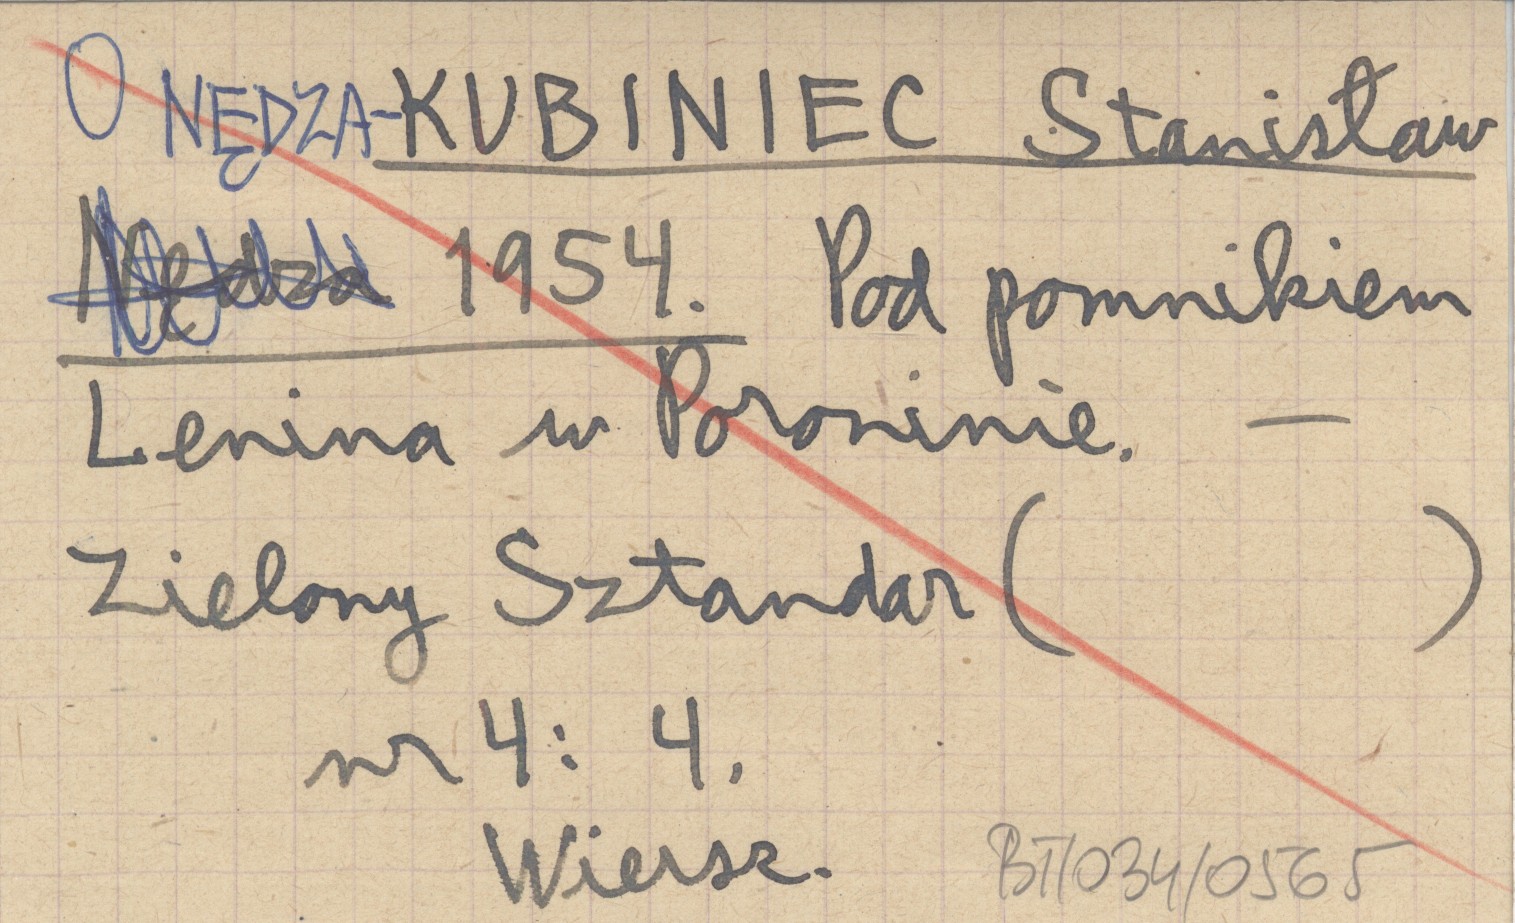 O NĘDZA-KUBINIEC Stanisław
Nędza 1954. Pod pomnikiem
Lenina w Poroninie. —
Zielony Sztandar ( )
nr 4: 4.
Wiersz.
BT/034/0565